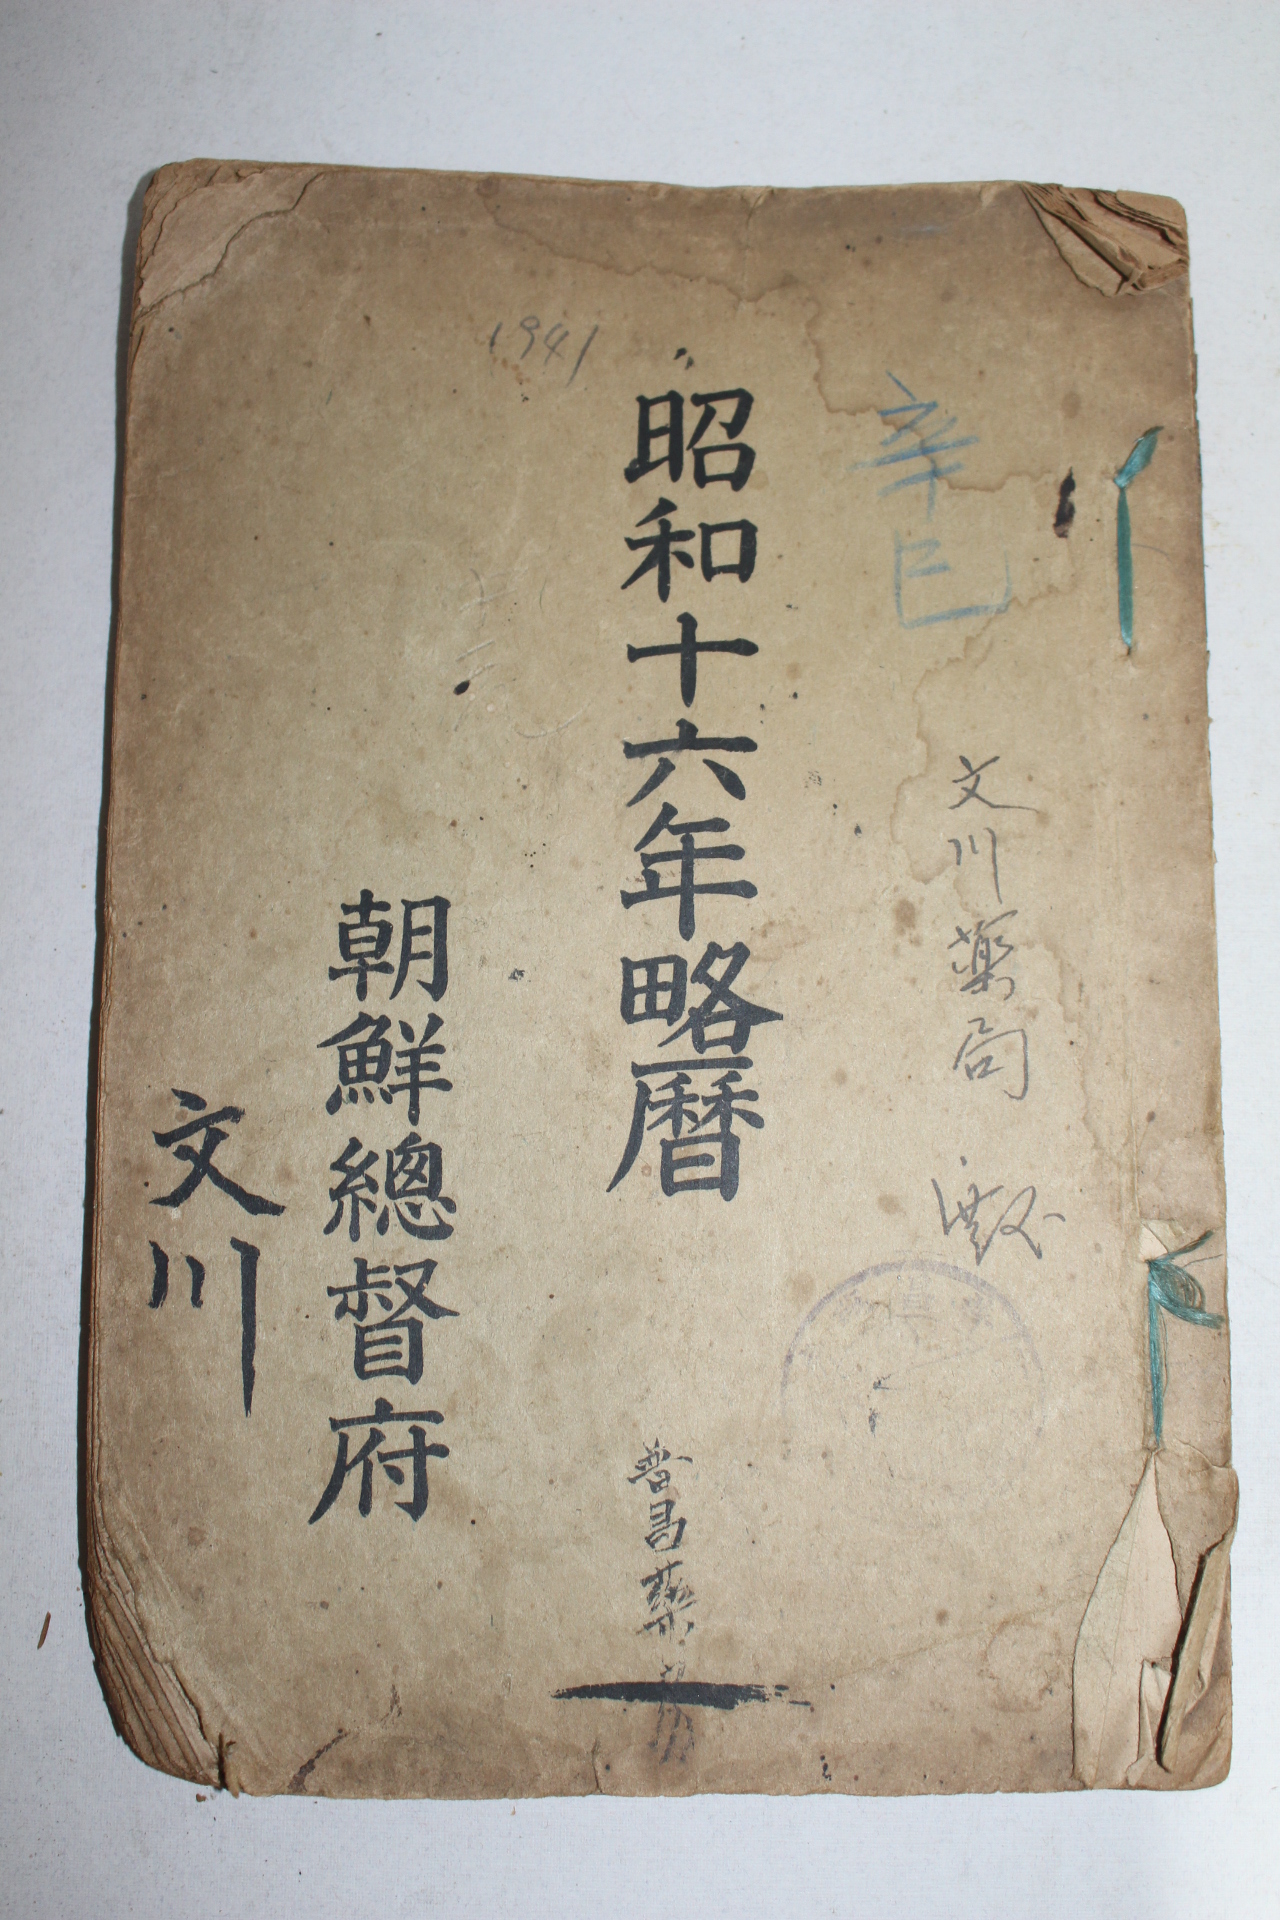 辛巳
文川藥局
昭和十六年略曆
普昌藥
1941
朝鮮總督府
文川